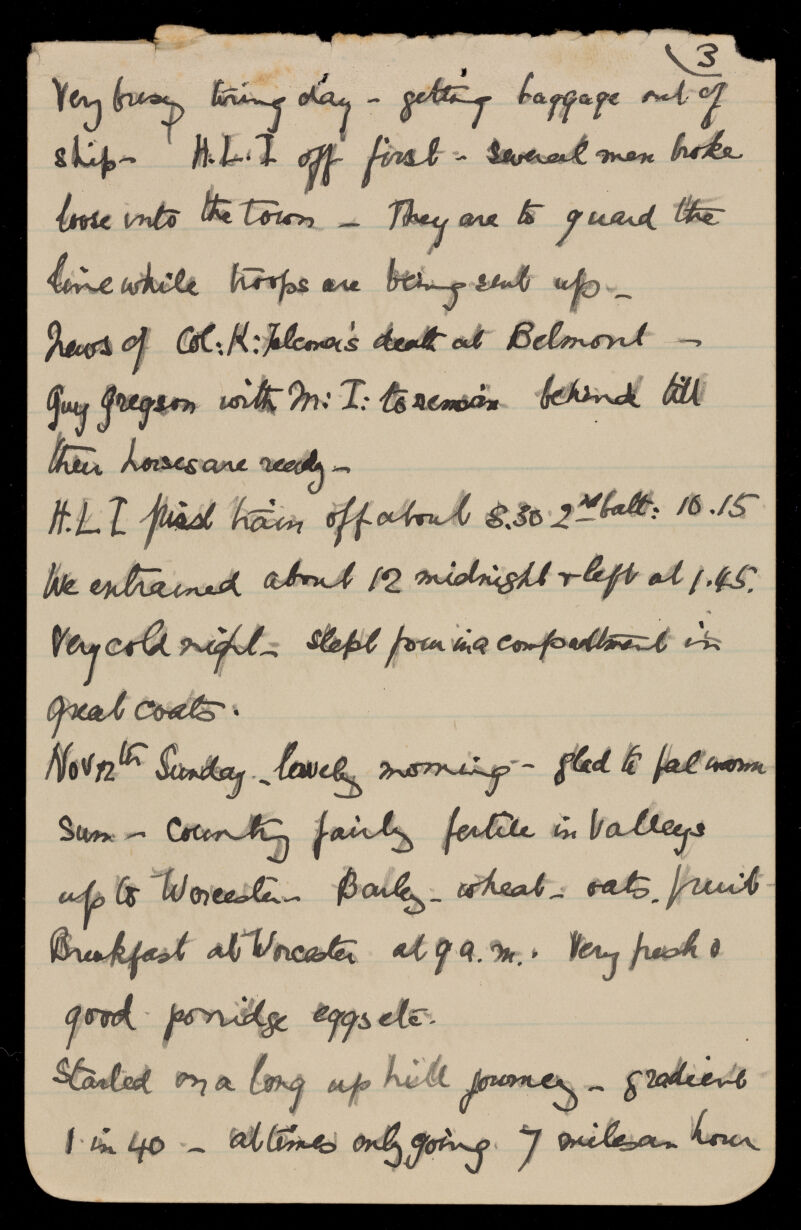 3
Very busy tiring day - getting baggage out of
ship - H.L.I off first - several men broke
loose into the town - They are to guard the
line while troops are being sent up -
News of Col: K: Falconer's death at Belmont -
Guy Gregson with M: I: to remain behind till
their horses are ready -
H.L I first train off about 8.30 2nd batt: 10.15
We entrained about 12 midnight & left at 1.45.
Very cold night - slept four in a compartment in
great coats.
Nov 12th Sunday - lovely morning - glad to feel warm
sun - Country fairly fertile in Valleys
up to Worcester - Barley - wheat - oats. fruit -
Breakfast at Worcester at 9 a.m. Very fresh &
good porridge eggs etc.
Started on a long up hill journey - gradient
1 in 40 - at times only going 7 miles an hour